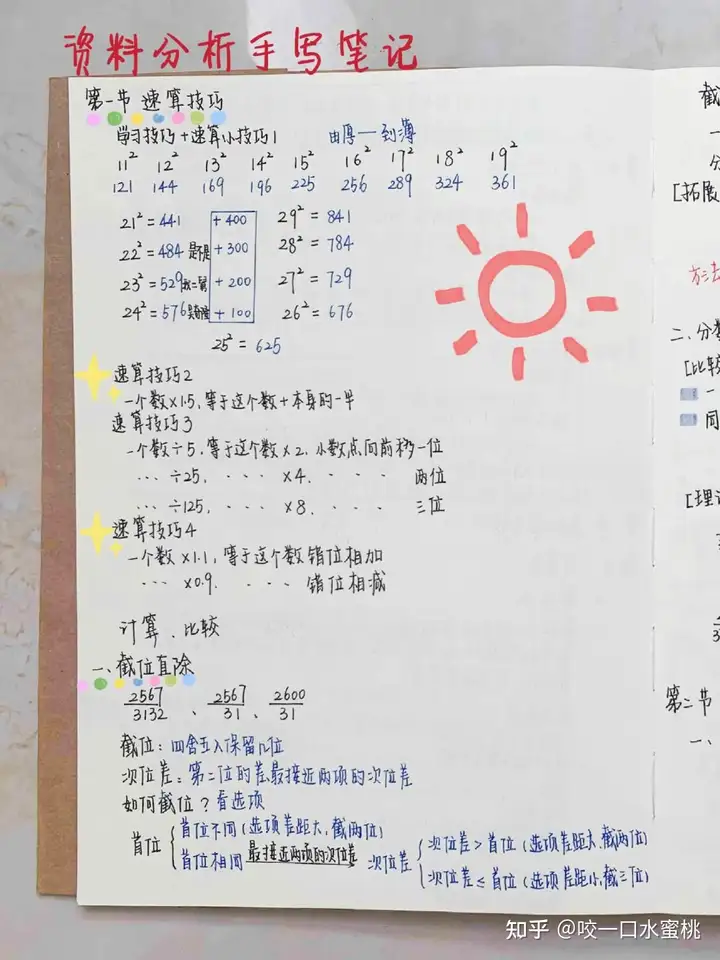 资料分析手写笔记
第一节 速算技巧
学习技巧+速算小技巧1 由厚一到薄
11² 12² 13² 14² 15² 16² 17² 18² 19²
121 144 169 196 225 256 289 324 361
21²=441 +400 29²=841
22²=484 是不是 +300 28²=784
23²=529 +200 27²=729
24²=576 +100 26²=676
25²=625
速算技巧2
一个数×1.5,等于这个数+本身的一半
速算技巧3
一个数÷5,等于这个数×2,小数点向前移一位
... ÷25, ... ×4, ... 两位
... ÷125, ... ×8, ... 三位
速算技巧4
一个数×1.1,等于这个数错位相加
... ×0.9, ... 错位相减
计算、比较
一、截位直除
2567/3132、2567/31、2600/31
截位:四舍五入保留几位
次位差:第二位的差,最接近两项的次位差
如何截位?看选项
首位 { 首位不同(选项差距大,截两位)
首位相同 最接近两项的次位差 次位差 { 次位差>首位(选项差距大,截两位)
次位差≤首位(选项差距小,截三位)
截
一
分
[拓展
方法
二、分数
[比较
一
同
[理论
第二节
一、
知乎 @咬一口水蜜桃